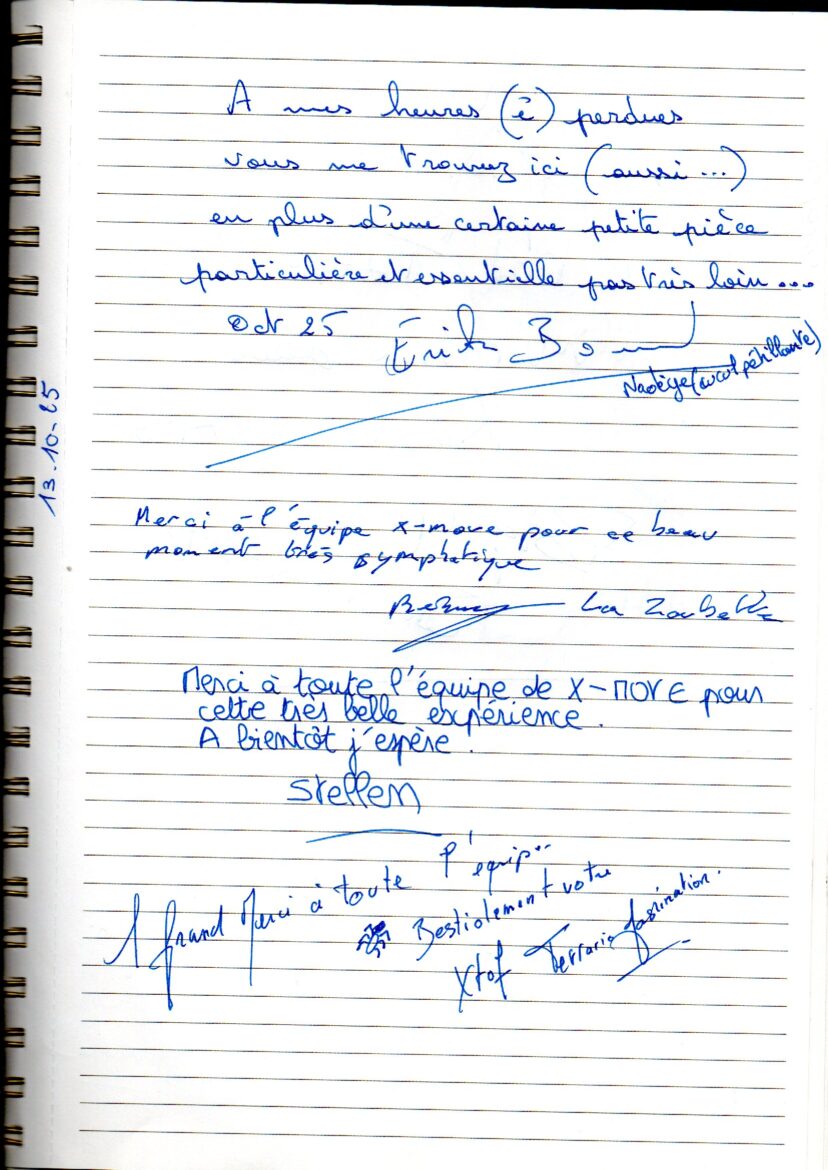 A mes heures (é) perdues
vous me trouvez ici (aussi...)
en plus d'une certaine petite pièce
particulière et essentielle pas très loin...
Oct 25
Nadège
13.10-25
Merci à l'équipe x-move pour ce beau
moment très symphatique
La
Merci à toute l'équipe de X-MOVE pour
cette très belle expérience.
A bientôt j'espère.
Stellen
1 grand Merci à toute l'équip...
Bestiolement votre
Xtof Terrario fascination.